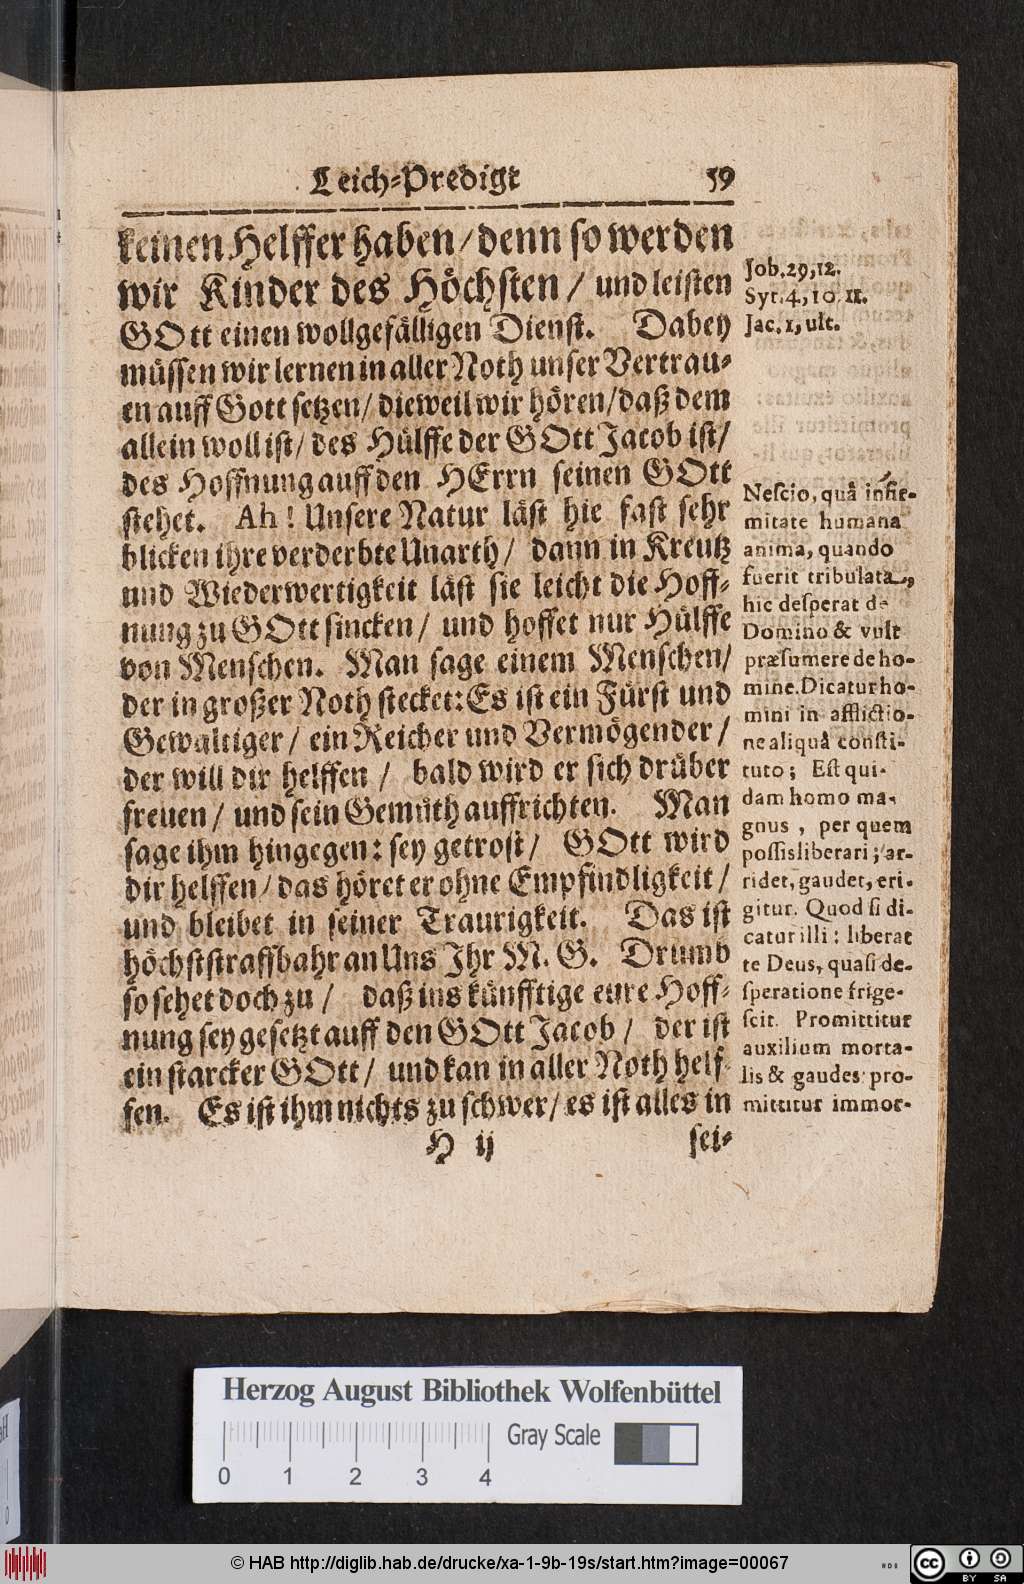 Leich-Predigt 59
keinen Helffer haben/ denn so werden
wir Kinder des Höchsten / und leisten
GOtt einen wollgefälligen Dienst. Dabey
müssen wir lernen in aller Noth unser Vertrau-
en auff Gott setzen/ dieweil wir hören/daß dem
allein woll ist/ des Hülffe der GOtt Jacob ist/
des Hoffnung auff den HErrn seinen GOtt
stehet. Ah! Unsere Natur läst hie fast sehr
blicken ihre verderbte Unarth/ dann in Kreutz
und Wiederwertigkeit läst sie leicht die Hoff-
nung zu GOtt sincken/ und hoffet nur Hülffe
von Menschen. Man sage einem Menschen/
der in großer Noth stecket: Es ist ein Fürst und
Gewaltiger/ ein Reicher und Vermögender/
der will dir helffen / bald wird er sich drüber
freuen/ und sein Gemüth auffrichten. Man
sage ihm hingegen: sey getrost/ GOtt wird
dir helffen/ das höret er ohne Empfindligkeit/
und bleibet in seiner Traurigkeit. Das ist
höchststraffbahr an Uns Ihr M. G. Drumb
so sehet doch zu / daß ins künfftige eure Hoff-
nung sey gesetzt auff den GOtt Jacob / der ist
ein starcker GOtt/ und kan in aller Noth helf
fen. Es ist ihm nichts zu schwer/ es ist alles in
H ij sei-
Job. 29, 12.
Syr. 4, 10 11.
Jac. 1, ult.
Nescio, quâ infir-
mitate humana
anima, quando
fuerit tribulata,
hic desperat de
Domino & vult
præsumere de ho-
mine. Dicatur ho-
mini in afflictio-
ne aliquâ consti-
tuto; Est qui-
dam homo ma-
gnus, per quem
possis liberari; ar-
ridet, gaudet, eri-
gitur. Quod si di-
catur illi: liberat
te Deus, quasi de-
speratione frige-
scit. Promittitur
auxilium morta-
lis & gaudes pro-
mittitur immor-
Herzog August Bibliothek Wolfenbüttel
Gray Scale
0 1 2 3 4
© HAB http://diglib.hab.de/drucke/xa-1-9b-19s/start.htm?image=00067
cc BY SA